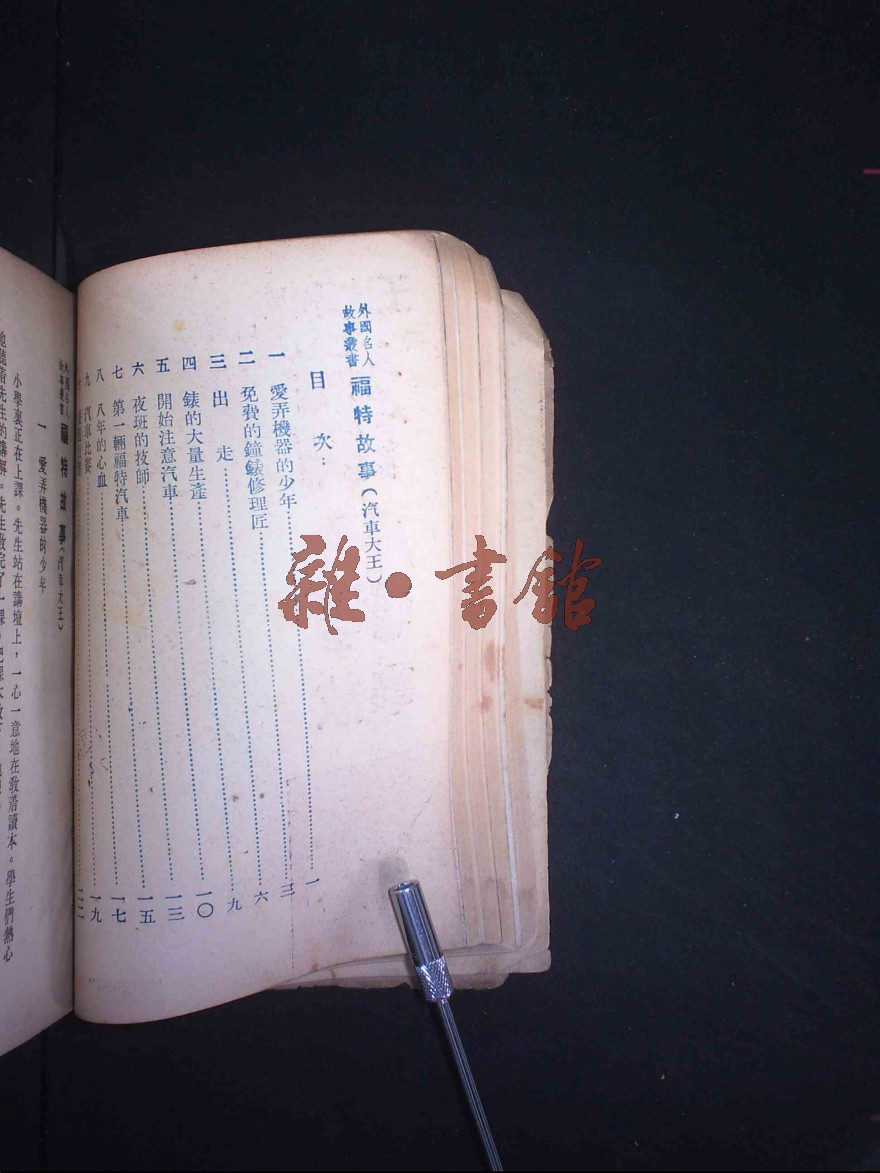 外國名人
故事叢書
福特故事（汽車大王）
目次：
一 愛弄機器的少年……一
二 免費的鐘錶修理匠……三
三 出走……六
四 錶的大量生產……九
五 開始注意汽車……一〇
六 夜班的技師……一三
七 第一輛福特汽車……一五
八 八年的心血……一七
九 汽車比賽……一九
十……二二
福特故事（汽車大王）
一 愛弄機器的少年
小學裏正在上課。先生站在講壇上，一心一意地在敎着讀本。學生們熱心
地聽着先生的講解。先生敎完了一課，把課本
雜·書館